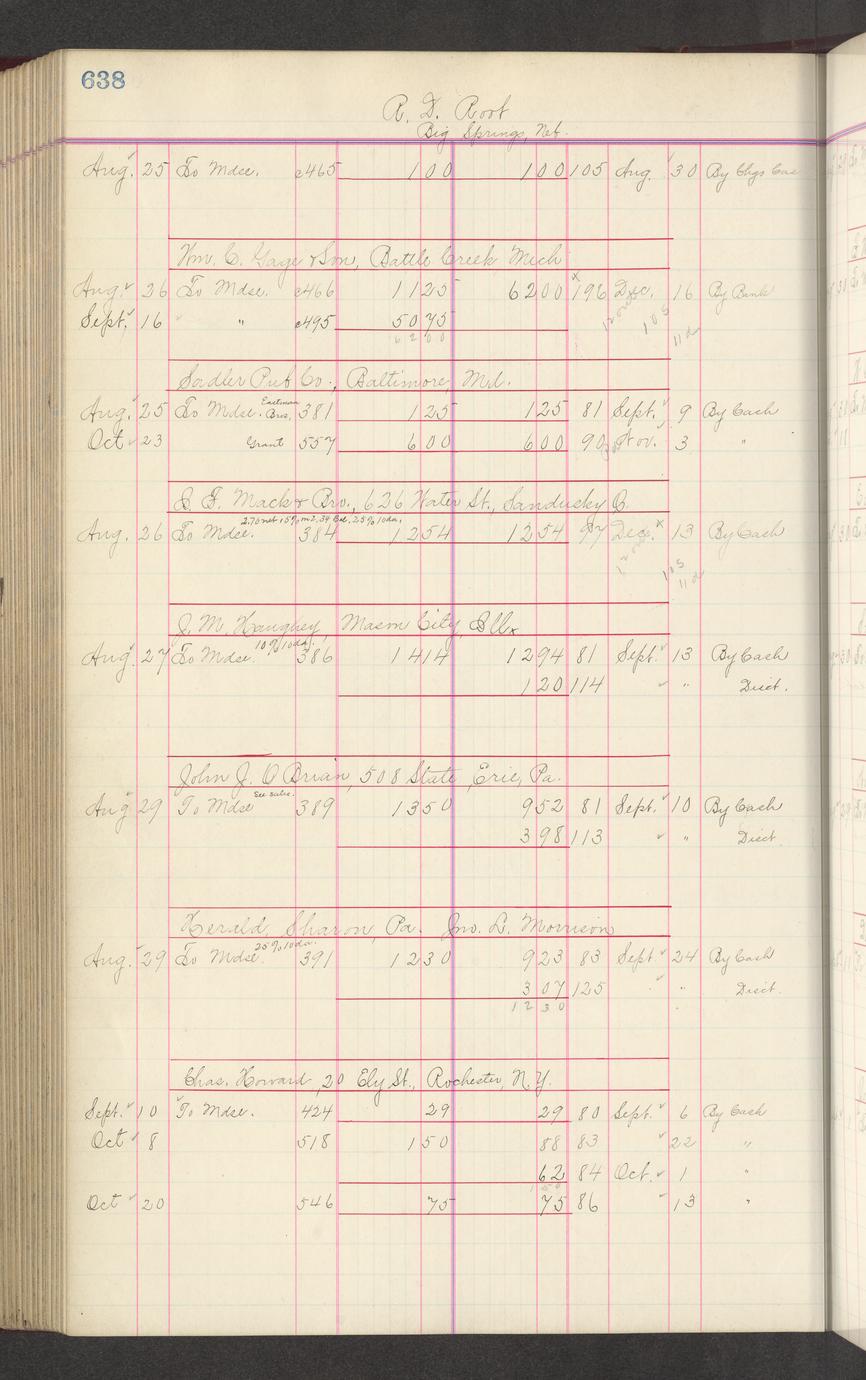 638
R. D. Root
Big Springs, Neb.
Aug. 25 To Mdse. c465 100 100 105 Aug. 30 By Chgs
Wm. C. Gage & Son, Battle Creek Mich
Aug. 26 To Mdse. c466 1125 6200 196 Dec. 16 By Bank
Sept. 16 " c495 5075
6200
11
Sadler Pub Co., Baltimore, Md.
Aug. 25 To Mdse. Eastman Bros. 381 125 125 81 Sept. 9 By Cash
Oct 23 Grant 557 600 600 90 Nov. 3 "
I. F. Mack & Bro., 626 Water St., Sandusky O.
Aug. 26 To Mdse. 384 1254 1254 97 Dec. 13 By Cash
J. M. Haughey, Mason City, Ills
10% 10 da.
Aug. 27 To Mdse. 386 1414 1294 81 Sept. 13 By Cash
120 114 " Disct.
John J. O Brian, 508 State, Erie, Pa.
See sales.
Aug 29 To Mdse 389 1350 952 81 Sept. 10 By Cash
398 113 " Disct.
Herald, Sharon, Pa. Jno. L. Morrison
25% 10 da.
Aug. 29 To Mdse. 391 1230 923 83 Sept 24 By Cash
307 125 " Disct.
1230
Chas. Howard, 20 Ely St., Rochester, N.Y.
Sept. 10 To Mdse. 424 29 29 80 Sept. 6 By Cash
Oct 8 518 150 88 83 22 "
62 84 Oct. 1 "
150
Oct 20 546 75 75 86 13 "